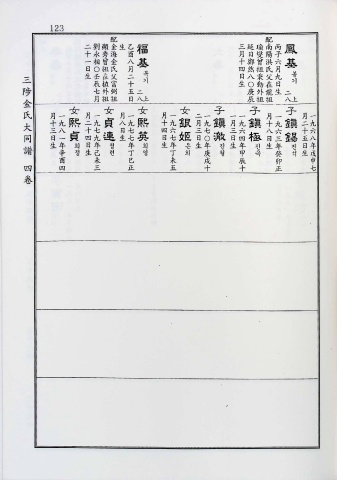 123
三陟金氏大同譜 四卷
鳳基 봉기 二八上
丙子六月九日生
配南陽洪氏父在龍祖
三月十四日生
福基 복기 二八上
乙酉八月二十五日
生
配金海金氏父富
二十一日生
一九六八年戊申七
月二十五日生
子鎭錫 진석
一九六三年癸卯正
月十八日生
子鎭極 진극
一九六四年甲辰十
一月三日生
子鎭澈 진철
一九七〇年庚戌十
二月三日生
女銀姬 은희
一九六七年丁未五
月十四日生
女熙英 희영
一九七七年丁巳正
月八日生
女貞連 정련
一九七九年己未三
月二十四日生
女熙貞 희정
一九八一年辛酉四
月十三日生